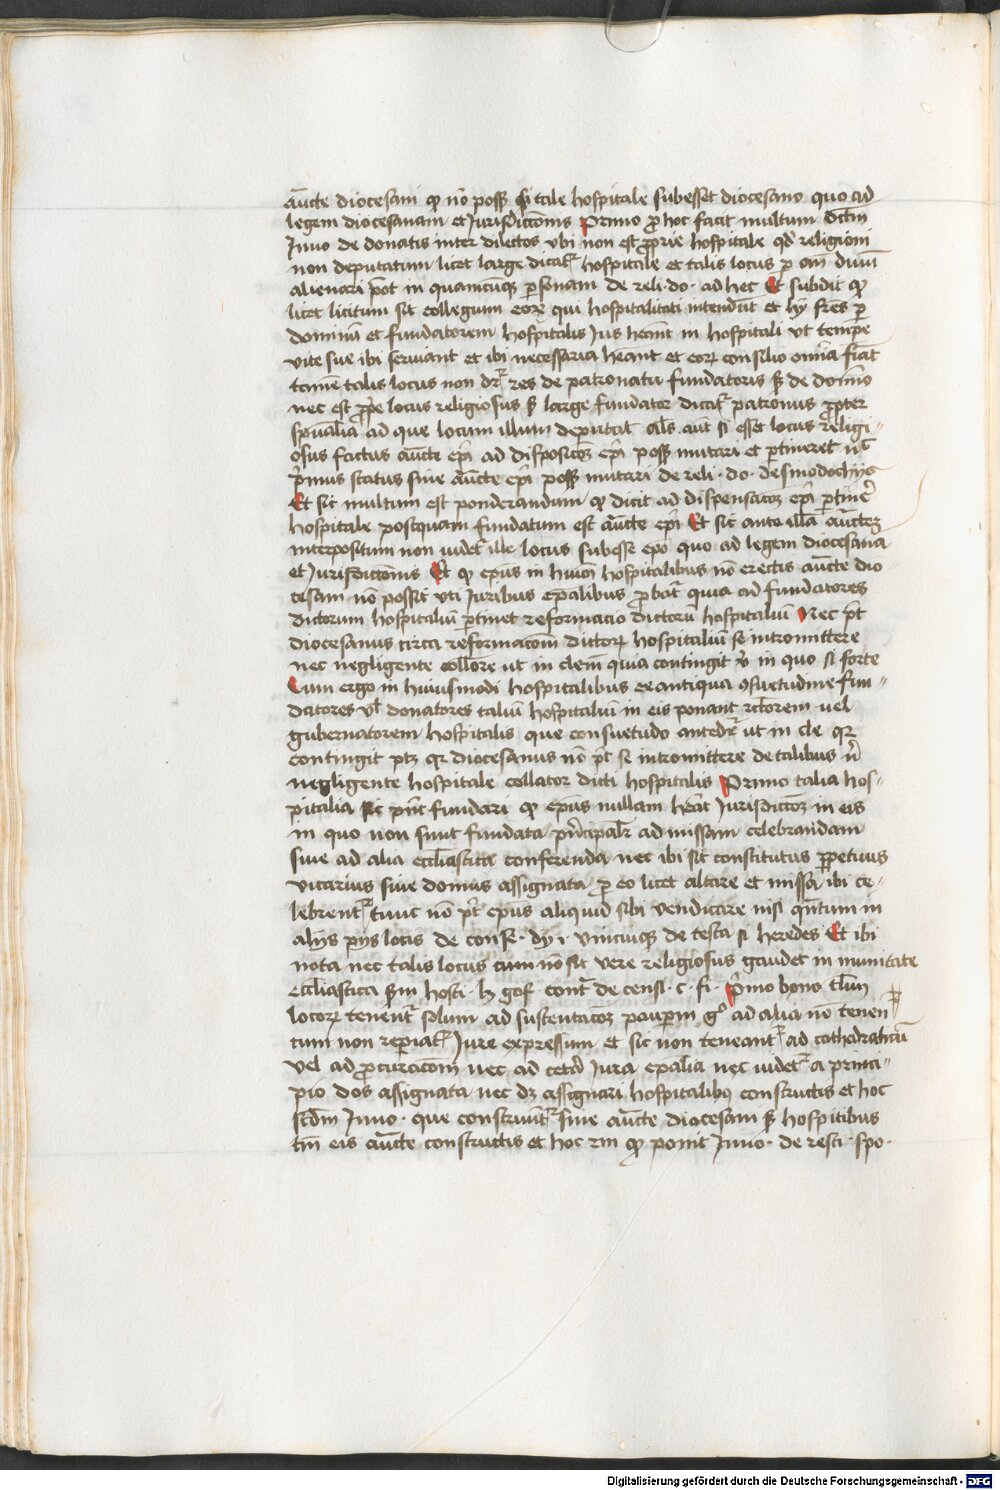 au̅cte diocesani qꝫ no̅ poss₃ si tale hospitale subesset diocesano quo ad
legem diocesanam et Jurisdicc̅onis Primo ꝓ hoc facit multum dictu̅
Inno de donatis inter dilectos vbi non est ꝓprie hospitale qd̕ religioni
non deputatum licet large dicat᷑ hospitale et talis locus ꝑ om̅ diuisu̅
alienari pot̅ in quamcu̅qꝫ ꝑsonam de reli · do · ad hec Et subdit qꝫ
licet licitum sit collegium eoꝝ qui hospitalitati intendu̅t et hij fr̅es ꝑ
dominu̅ et fundatorem hospitalis Jus hea̅nt in hospitali vt tempe̅
vite sue ibi seruiant et ibi necessaria hea̅nt et eoꝝ consilio omi̅a fia̅t
tame̅ talis locus non dr̅ res de patronatu fundatoris sꝫ de domi̅o
nec est ꝓpe̅ locus religiosus sꝫ large fundator dicat᷑ patronus ꝓpter
spu̅alia ad que locum illum deputat al̅s aut si esset locus religi
osus factus au̅cte epi̅ ad disposic̅oꝫ epi̅ poss₃ mutari et ꝑtineret nͨ
pͥmus status sine au̅cte epi̅ poss₃ mutari de reli · do · de smodochijs
Et sic multum est ponderandum qꝫ dicit ad dispensac̅oꝫ epi̅ ꝑtine̅
hospitale postquam fundatum est au̅cte epi̅ Et sic ante illa̅ au̅cteꝫ
interpositum non videt᷑ ille locus subesse epo̅ quo ad legem diocesana̅
et Jurisdicc̅onis Et qꝫ epu̅s in huiu̅s hospitalibus no̅ erectis au̅cte dio
cesani no̅ possit vti Juribus ep̅alibus ꝓbat᷑ quia ad fundatores
dictorum hospitaliu̅ ꝑtinet reformacio dictoru̅ hospitaliu̅ Nec pt̅
diocesanus circa reformac̅om dictoꝝ hospitaliu̅ se intromittere
nec negligente coll̅ore ut in clem̅ quia contingit ꝟ in quo si forte
Cum ergo in huiusmodi hospitalibus ex antiqua ꝯsuetudine fun
datores vl̕ donatores taliu̅ hospitaliu̅ in eis ponant rc̅torem vel
gubernatorem hospitalis que consuetudo antedr̅ ut in cle qꝛ
contingit ptꝫ qꝛ diocesanus no̅ pt̅ se intromittere de talibus ni̅
negligente hospitale collator dicti hospitalis Primo talia hos
pitalia sic pn̅t fundari qꝫ epu̅s nullam hea̅t Jurisdicc̅oꝫ in eis
in quo non sunt fundata pͥncipalr̕ ad missam celebrandam
siue ad alia eccl̅iastica conferenda nec ibi sit constitutus ꝑpetuus
vicarius siue domus assignata ꝓ eo licet altare et missa ibi ce
lebrent᷑ tunc no̅ pt̅ epus aliquid sibi vendicare nisi qn̅tum in
alijs pijs locis de conse · dy i vnicuiqꝫ de testa si heredes Et ibi
nota nec talis locus cum no̅ sit vere religiosus gaudet in munitate
eccl̅iastica sꝫm hosti · h gof cont᷑ de censi · c · fi · Pͥmo bono tl̅m
locoꝝ tenent᷑ solum ad sustentac̅oꝫ pauꝑm gͦ ad alia no̅ tenen
tum non reperiat᷑ Jure expressum et sic non teneant᷑ ad cathedraticu̅
vel ad ꝓcurac̅om nec ad cete̅ Jura ep̅alia nec videt᷑ a princi
pio dos assignata nec dꝫ assignari hospitalibꝫ constructis et hoc
scd̅m Inno · que construu̅t᷑ sine au̅cte diocesani sꝫ hospitibus
tm̅ eis au̅cte constructis et hoc rm̅ qꝫ ponit Inno · de resti · spo ·
Digitalisierung gefördert durch die Deutsche Forschungsgemeinschaft - DFG